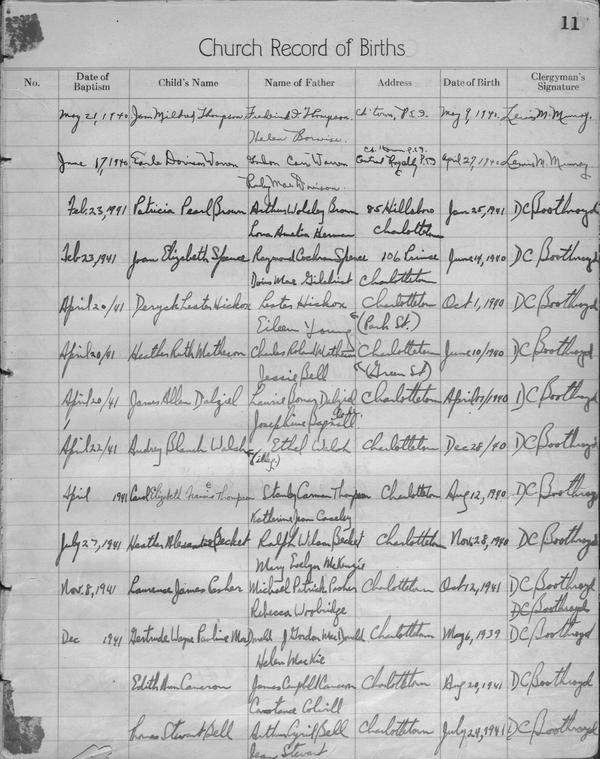 11
Church Record of Births
No. Date of Baptism Child's Name Name of Father Address Date of Birth Clergyman's Signature
May 21, 1940 Mildred Thompson Thompson P.E.I. May 9, 1940 Lewis M. Murray
Helen
June 17, 1940 Earle Davison Warren Carr Warren Central Royalty P.E.I. April 27, 1940 Lewis M. Murray
Ruby Mae Davison
Feb. 23, 1941 Patricia Pearl Brown Arthur Wolsley Brown 85 Hillsboro Jan 25, 1941 D C Boothroyd
Lorna Amelia Herman Charlottetown
Feb 23, 1941 Joan Elizabeth Spence Raymond Cochran Spence 106 Prince June 14, 1940 D C Boothroyd
Doris Mae Gilchrist Charlottetown
April 20/41 Deryck Lester Hickox Lester Hickox Charlottetown Oct 1, 1940 D C Boothroyd
Eileen Young (Park St.)
April 20/41 Heather Ruth Matheson Charles Roland Matheson Charlottetown June 10/1940 D C Boothroyd
Jessie Bell (Green St)
April 20/41 James Allen Dalziel Laurie Jones Dalziel Charlottetown April /1940 D C Boothroyd
Josephine Bagnall
April 22/41 Audrey Blanch Walsh Ethel Walsh Charlottetown Dec 28/40 D C Boothroyd
April 1941 Carol Elizabeth Thompson Stanley Carman Thompson Charlottetown Aug 12, 1940 D C Boothroyd
Katherine Jean Caseley
July 27, 1941 Heather Becket Ralph Wilson Becket Charlottetown Nov. 28, 1940 D C Boothroyd
Mary Evelyn McKenzie
Nov. 8, 1941 Laurence James Michael Patrick Charlottetown Oct 12, 1941 D C Boothroyd
Rebecca Woolridge D C Boothroyd
Dec 1941 Gertrude Wayne Pauline MacDonald J Gordon MacDonald Charlottetown May 6, 1939 D C Boothroyd
Helen MacKie
Edith Ann Cameron James Campbell Cameron Charlottetown Aug 20, 1941 D C Boothroyd
Constance Colwill
Thomas Stewart Bell Arthur Cyril Bell Charlottetown July 24, 1941 D C Boothroyd
Jean Stewart